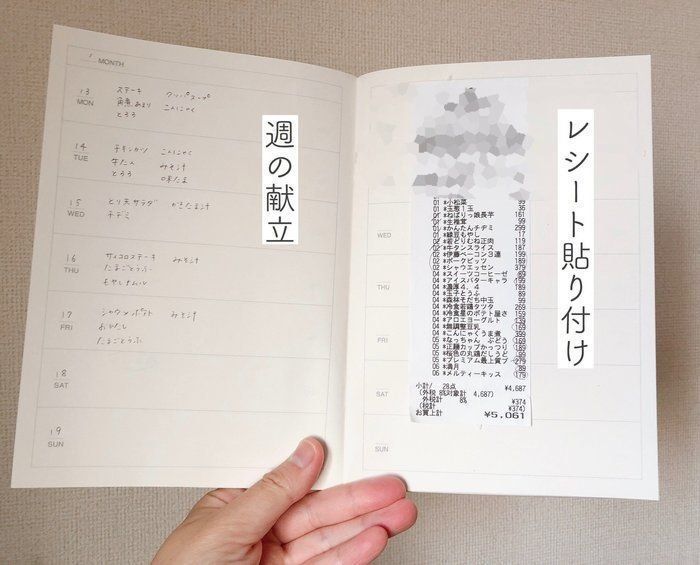 MONTH
13
MON
ステーキ クッパスープ
角煮あまり こんにゃく
とろろ
14
TUE
チキンカツ こんにゃく
牛たん みそ汁
とろろ 味たま
15
WED
とり天サラダ かきたま汁
チヂミ
16
THU
サイコロステーキ みそ汁
たまごとうふ
もやしナムル
17
FRI
シャウエンポテト みそ汁
おひたし
たまごとうふ
18
SAT
19
SUN
週の献立
WED
THU
FRI
SAT
SUN
01 *小松菜 99
01 *玉葱1玉 36
01 *ねばりっ娘長芋 161
01 *生椎茸 99
01 *かんたんチヂミ 299
01 *緑豆もやし 17
02 *若どりむね正肉 119
02 *牛タンスライス 187
02 *伊藤ベーコン3連 199
02 *ポークビッツ 189
02 *シャウエッセン 379
04 *スイーツコーヒーゼ 69
04 *アイスバターキャラ 199
04 *濃厚4.4 189
04 *玉子とうふ 89
04 *森林そだち中玉 99
04 *冷食若鶏タツタ 269
04 *冷食星のポテト屋さ 159
04 *アロエヨーグルト 139
04 *無調整豆乳 169
04 *こんにゃくうま煮 399
05 *なっちゃん ぶどう 169
05 *正麺カップかっつり 189
05 *桜色の丸鶏だしうど 99
05 *プレミアム最上質プ 279
06 *満月 89
06 *メルティーキッス 179
小計/ 28点 ¥4,687
(外税 8%対象計 4,687)
外税計 8% ¥374
(税計 ¥374)
お買上計 ¥5,061
レシート貼り付け